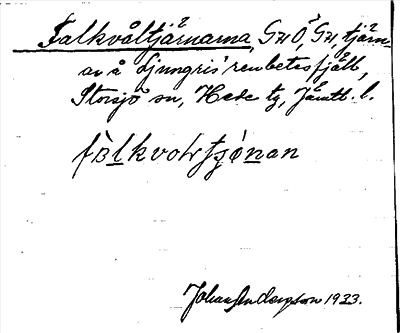 Falkvåltjärnarna, GzÖ, Gz, tjärn-
ar å Ljungris' renbetesfjäll,
Storsjö sn, Hede tg, Jämtl. l.
fàlkvoltjónan
Johan Andersson 1933.